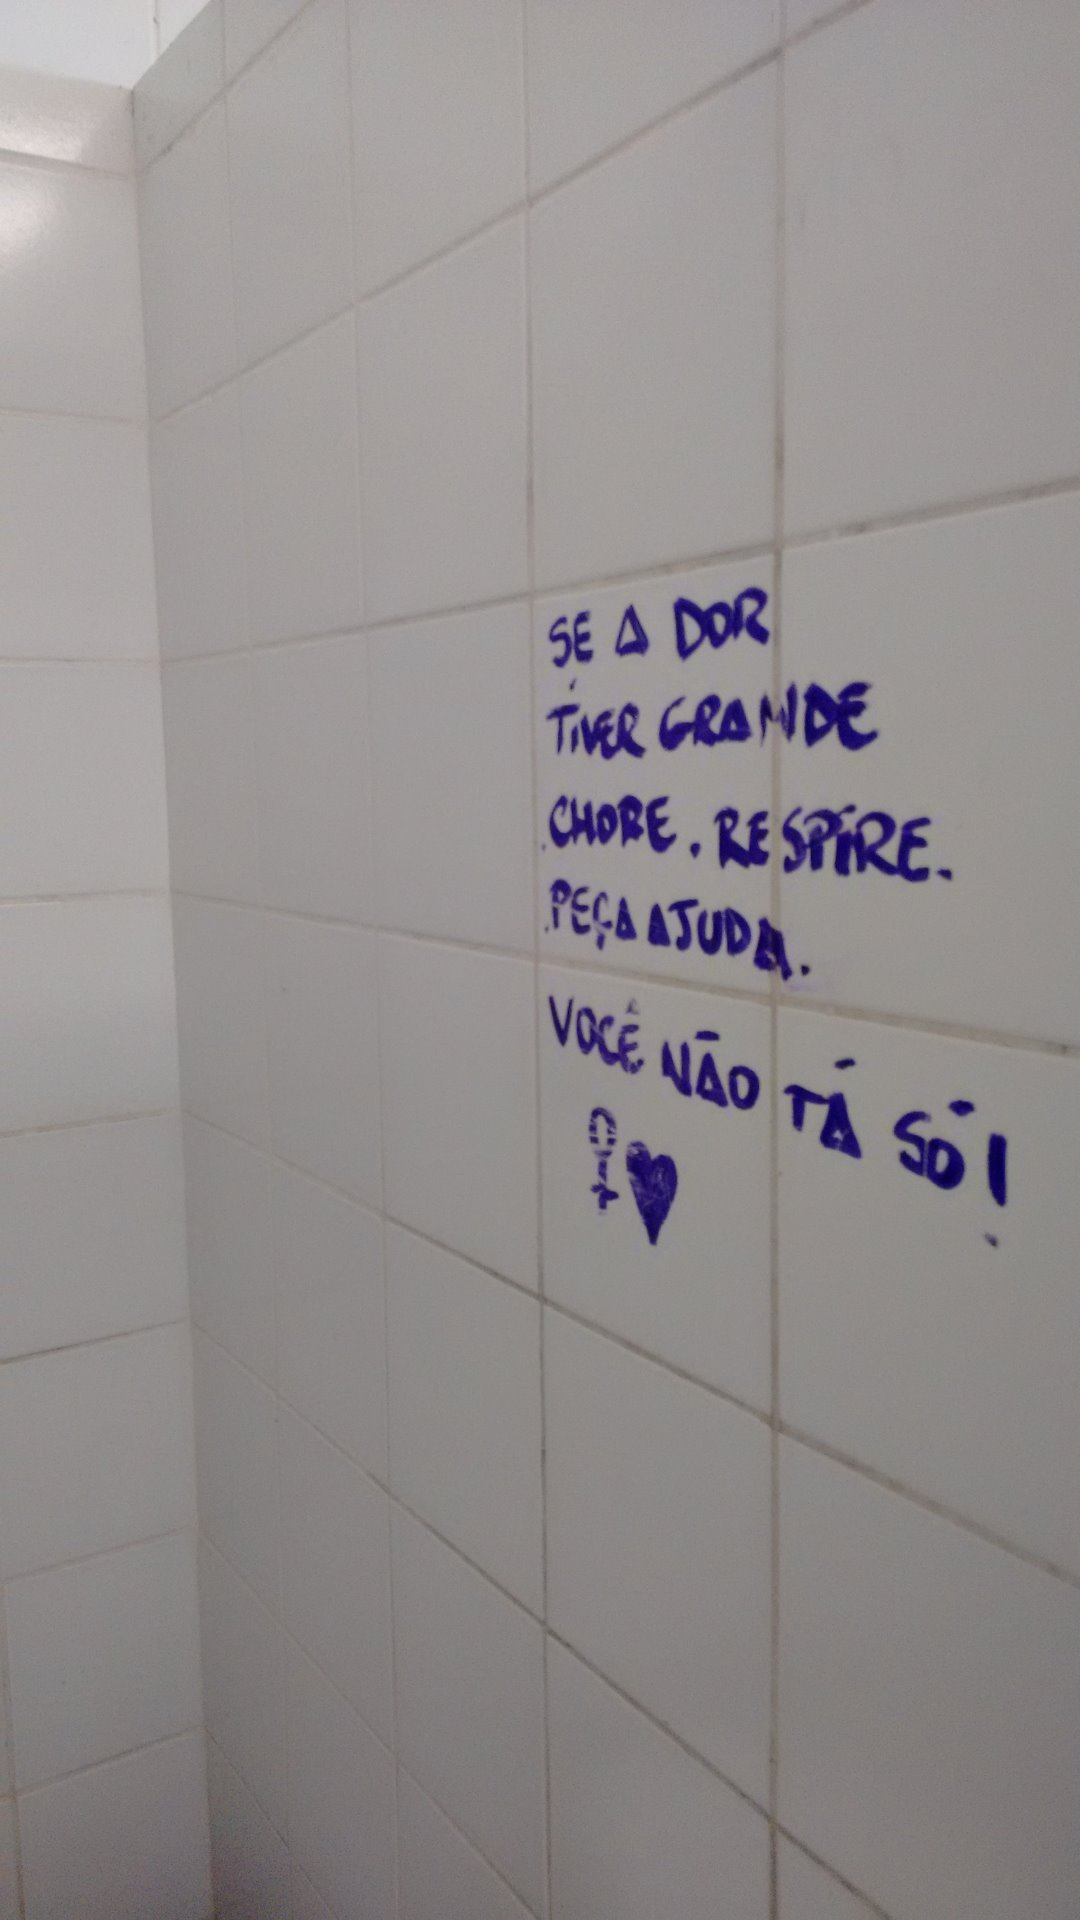 SE A DOR
TIVER GRANDE
CHORE. RESPIRE.
PEÇA AJUDA.
VOCÊ NÃO TÁ SÓ!